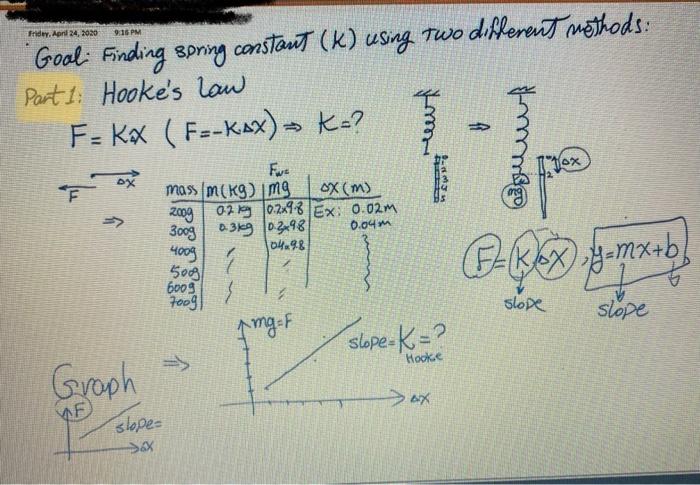 Friday, April 24, 2020 9:16 PM
Goal: Finding spring constant (K) using Two different methods:
Part 1: Hooke's law
F = KX ( F=-KΔX) ⇒ K=?
F ΔX
Fwe
mass m(kg) mg ΔX(m)
200g 0.2 kg 0.2x9.8 Ex: 0.02m
300g 0.3kg 0.3x9.8 0.04m
400g 0.4x9.8
500g
600g
700g
mg
ΔX
F=KΔX, y=mx+b
slope slope
mg=F
slope=K=?
Hooke
ΔX
Graph
F
slope=
ΔX